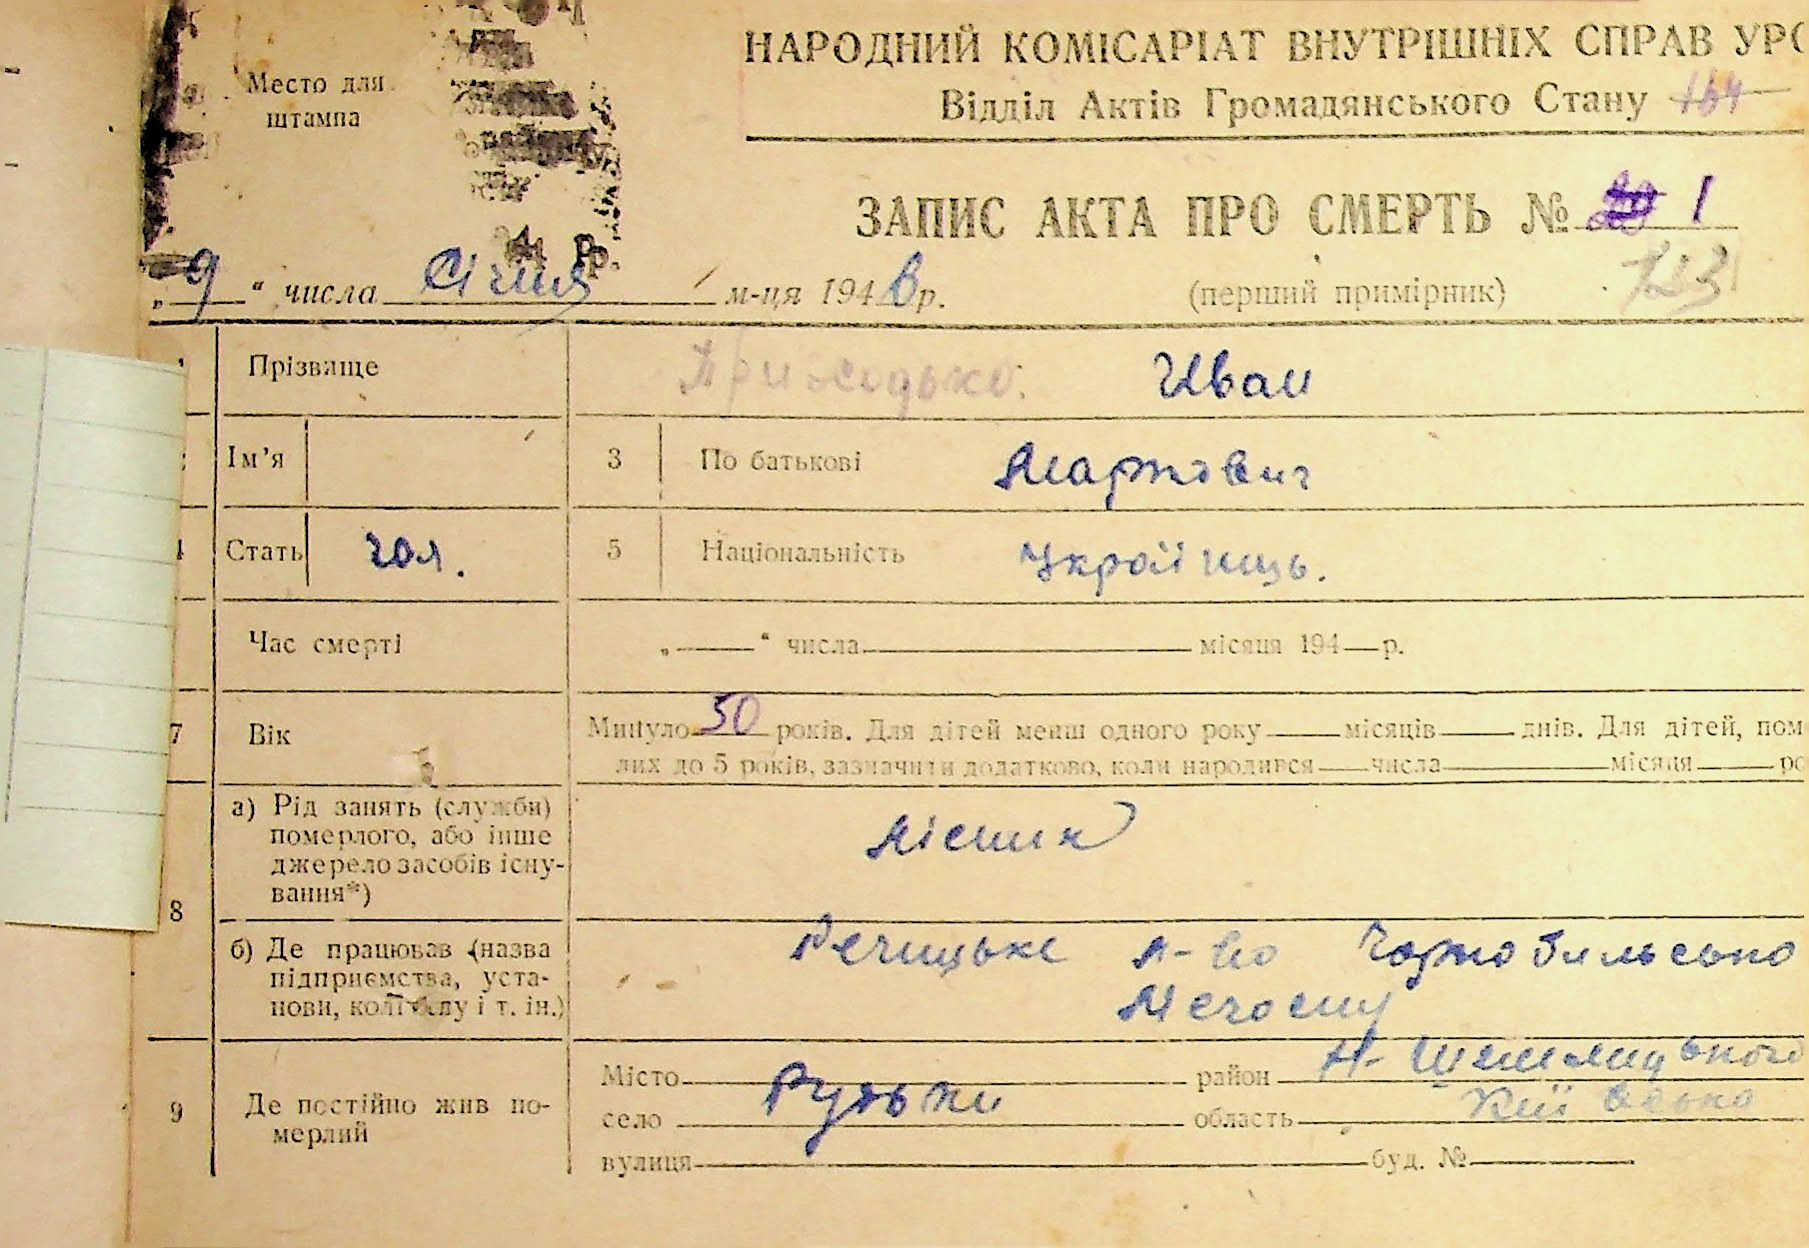 Место для
штампа
НАРОДНИЙ КОМІСАРІАТ ВНУТРІШНІХ СПРАВ УРС
Відділ Актів Громадянського Стану 164
ЗАПИС АКТА ПРО СМЕРТЬ № 1
„9“ числа Січня м-ця 1946 р. (перший примірник) 123
Прізвище Приходько. Иван
Ім’я 3 По батькові Маркович
4 Стать чол. 5 Національність Українць.
Час смерті „ “ числа місяця 194 р.
7 Вік Минуло 50 років. Для дітей менш одного року місяців днів. Для дітей, пом
лих до 5 років, зазначити додатково, коли народився числа місяця ро
8 а) Рід занять (служби)
померлого, або інше
джерело засобів існу-
вання*)
Лісник
б) Де працював (назва
підприємства, уста-
нови, колгоспу і т. ін.)
Речицьке л-во Чорнобильсько
9 Де постійно жив по-
мерлий
Місто район Н-Шепелицького
село Рудьки область Київсько
вулиця буд. №